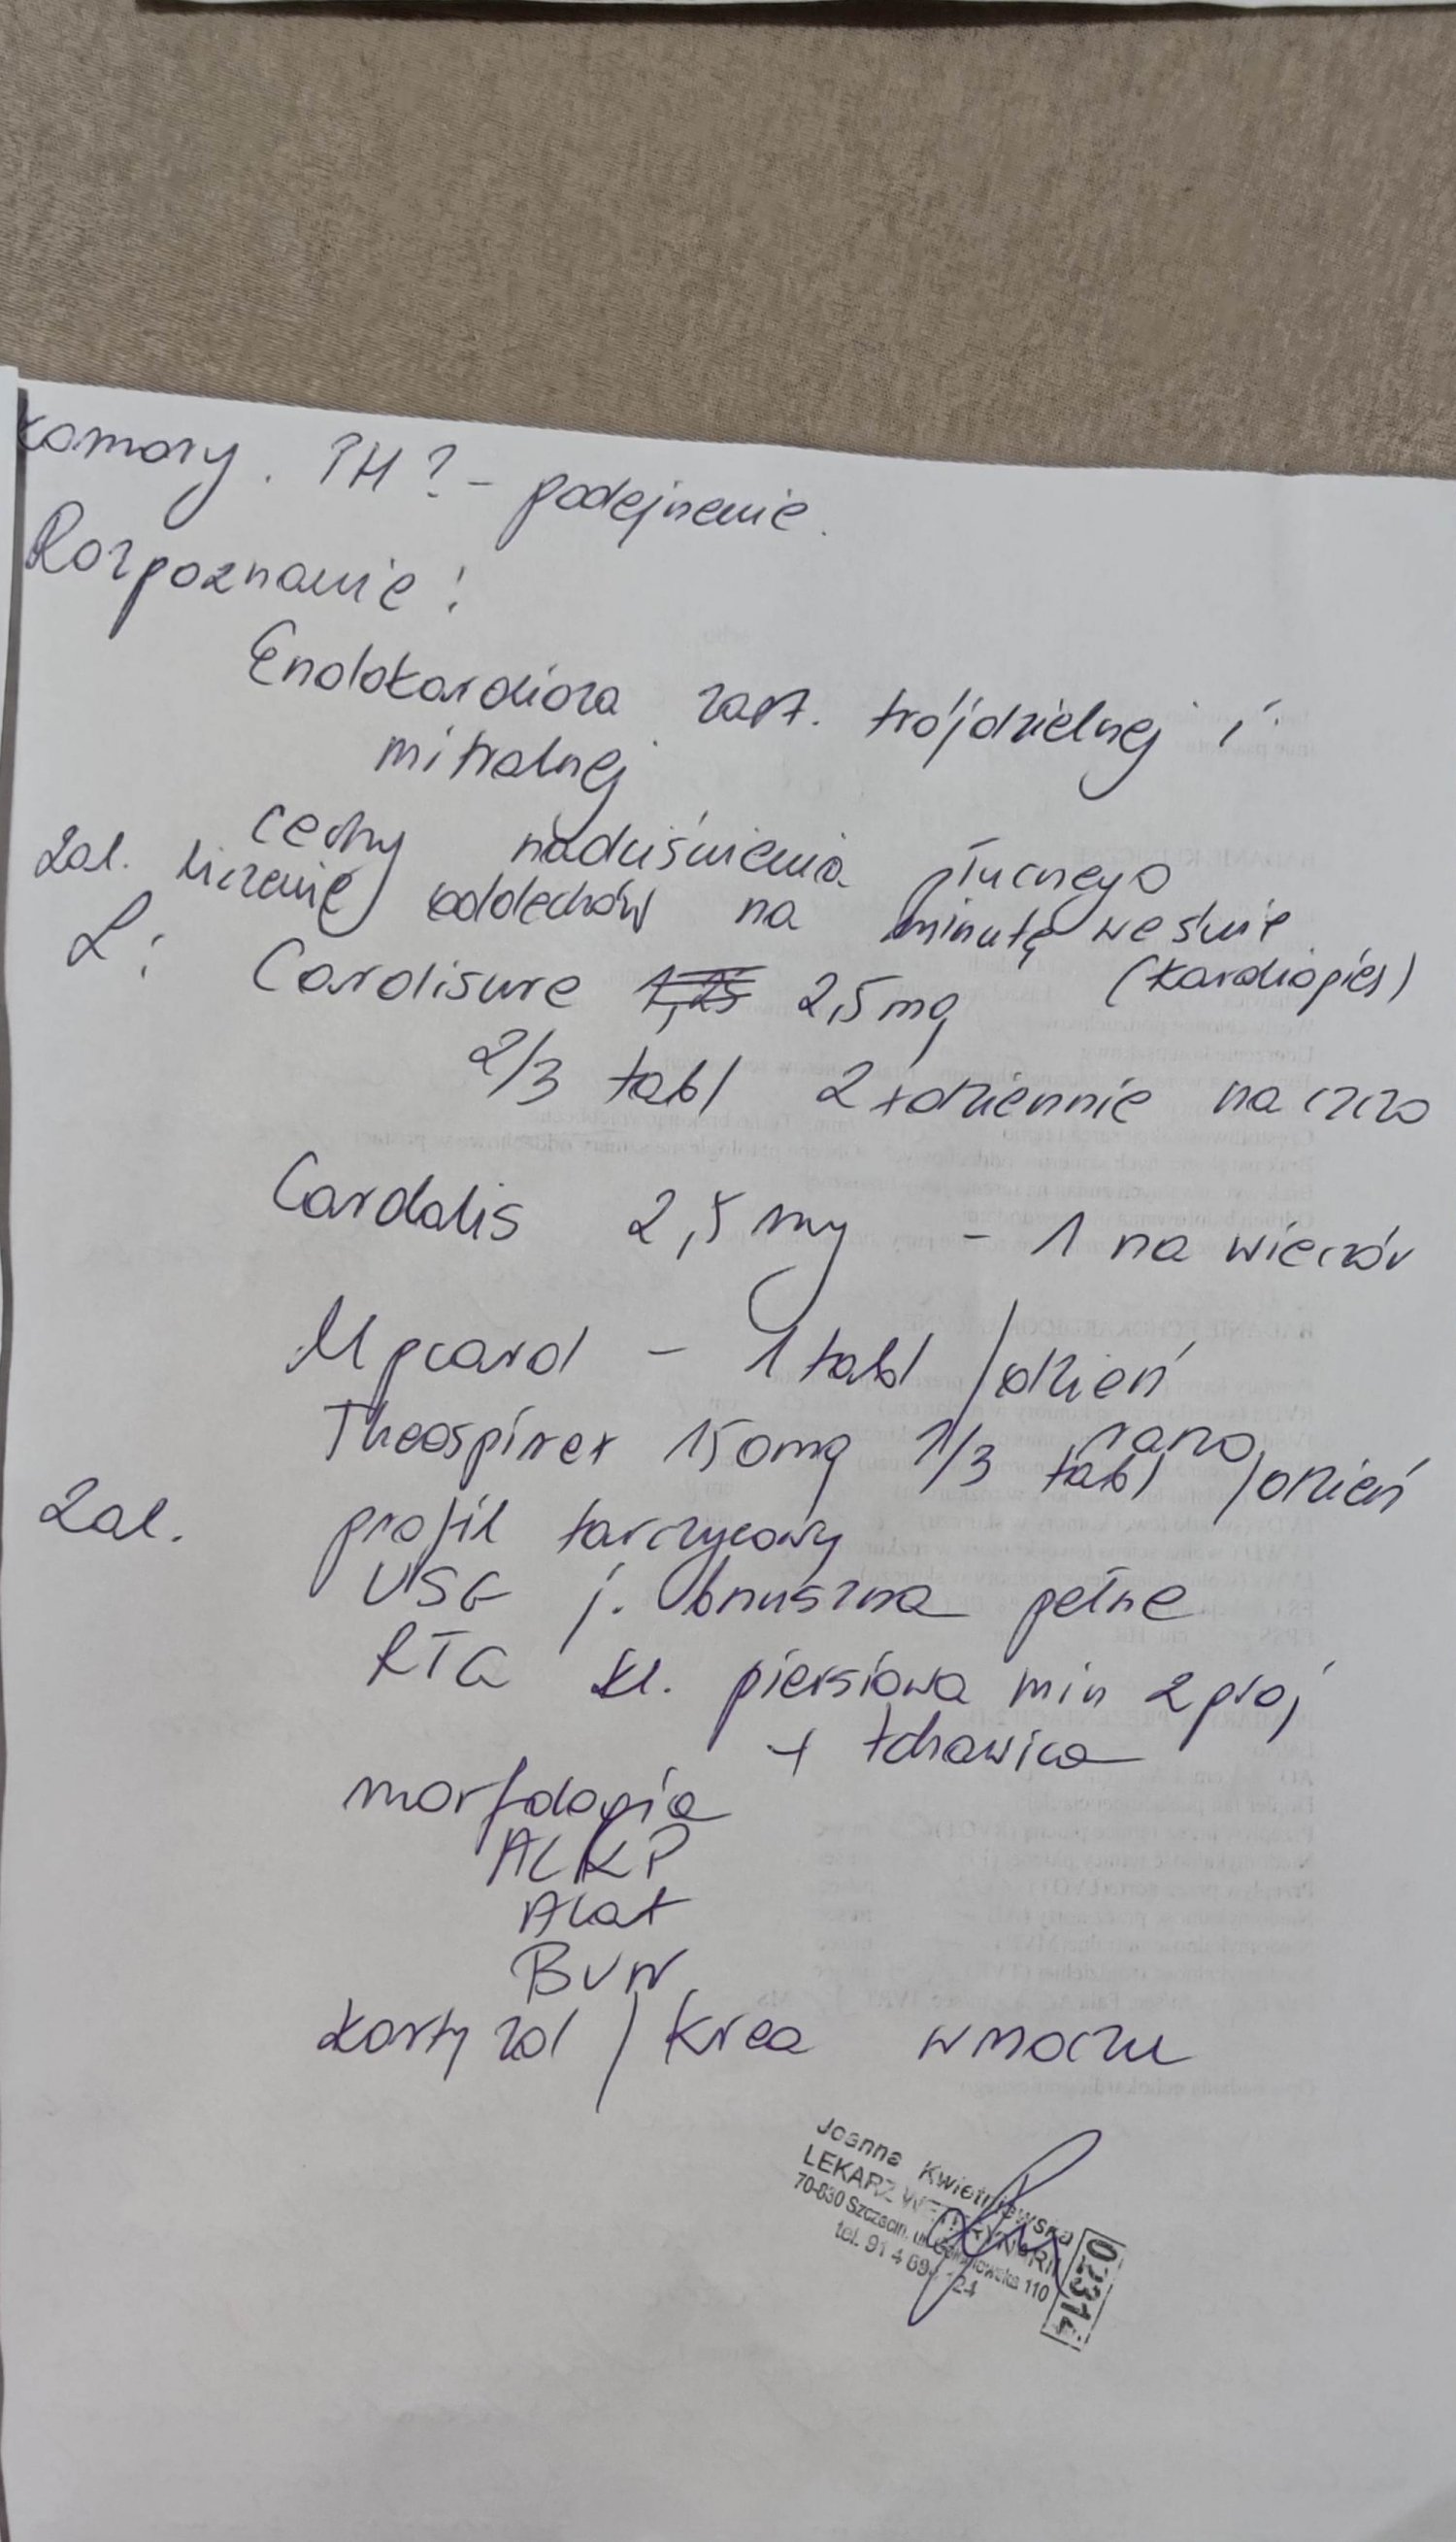 komory. PH? - podejrzenie.
Rozpoznanie:
Endokardioza zast. trójdzielnej i
mitralnej
cechy nadciśnienia płucnego
Zal. liczenie oddechów na minutę we śnie
(kardiopies)
L: Cardisure 1,25 2,5mg
2/3 tabl 2xdziennie na czczo
Cardalis 2,5 mg - 1 na wieczór
Upcard - 1 tabl /dzień
rano
Theospirex 150mg 1/3 tabl /dzień
Zal. profil tarczycowy
USG j. brzuszna pełne
RTG kl. piersiowa min 2 proj
+ tchawica
morfologia
ALKP
Alat
BUN
kortyzol / krea w moczu
Joanna Kwietniewska
LEKARZ WETERYNARII
70-830 Szczecin, ul. 110
tel. 91 4
02314